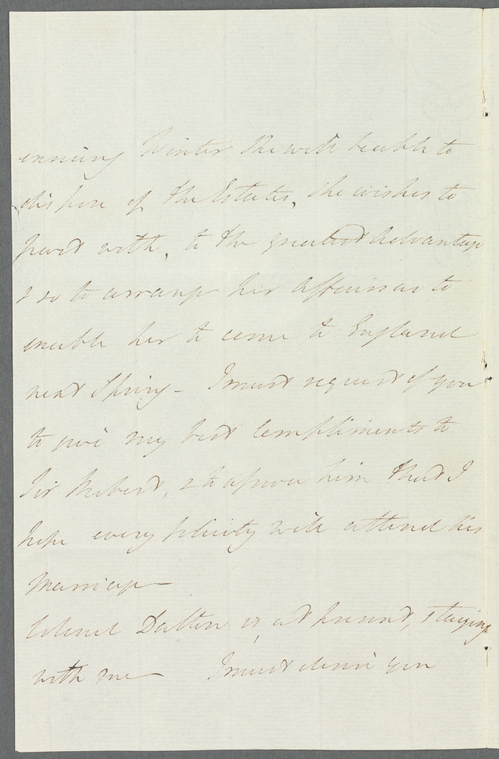 ensuing Winter she will be able to
dispose of the Estates, she wishes to
part with, to the greatest Advantage
& so to arrange her Affairs as to
enable her to come to England
next Spring - I must request of you
to give my best Compliments to
Sir Robert, & to assure him that I
hope every felicity will attend his
Marriage -
Colonel Dalton is, at present, staying
with me - I must desire you